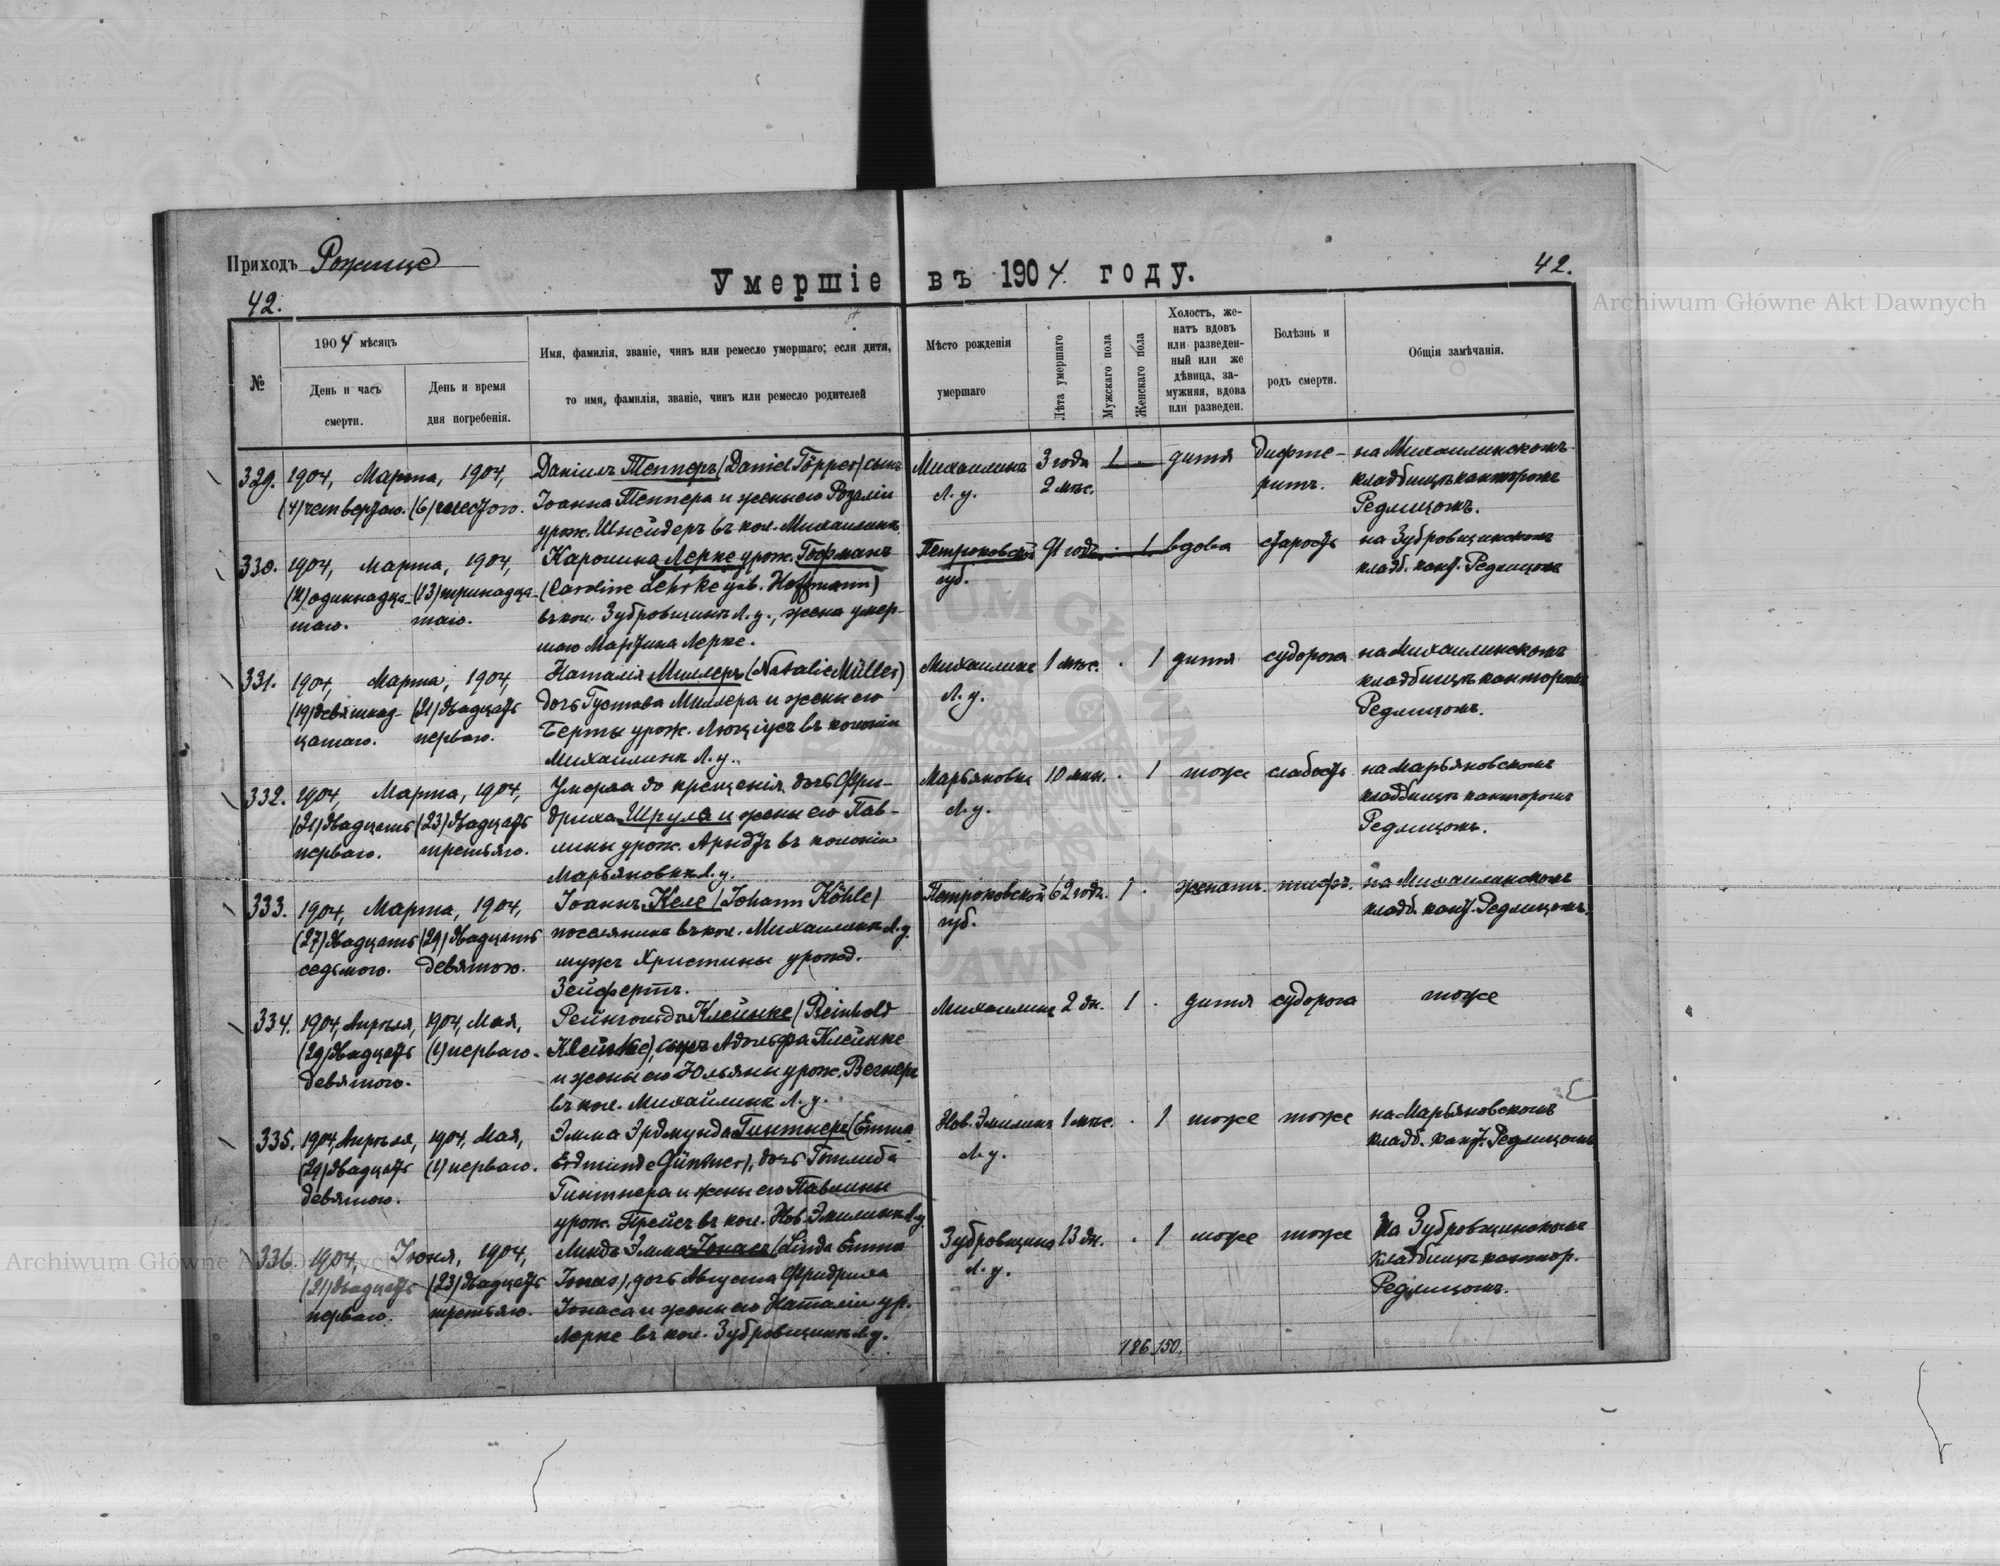 Приходъ Рожище
Умершіе въ 1904 году.
42.
42.
Archiwum Główne Akt Dawnych
№
1904 мѣсяцъ
День и часъ
смерти.
День и время
дня погребенія.
Имя, фамилія, званіе, чинъ или ремесло умершаго; если дитя,
то имя, фамилія, званіе, чинъ или ремесло родителей
Мѣсто рожденія
умершаго
Лѣта умершаго
Мужскаго пола
Женскаго пола
Холостъ, же-
натъ вдовъ
или разведен-
ный или же
дѣвица, за-
мужняя, вдова
или разведен.
Болѣзнь и
родъ смерти.
Общія замѣчанія.
329. 1904, Марта, 1904, Даніилъ Тепперъ (Daniel Töpper) сынъ Михаилинъ 3 года 1 . дитя дифте- на Михаилинскомъ
(4) четвертаго. (6) шестого. Іоанна Теппера и жены его Розаліи Л. у. 2 мѣс. ритъ. кладбищѣ канторомъ
урож. Шнейдеръ въ кол. Михаилинѣ Редлицомъ.
330. 1904, Марта, 1904, Каролина Лерке урож. Гофманъ Петроковской 91 годъ . 1 вдова старость на Зубровщинскомъ
(11) одиннадца- (13) тринадца- (Caroline Lehrke geb. Hoffmann) губ. кладб. кант. Редлицомъ
таго. таго. въ кол. Зубровщинѣ Л. у., жена умер-
шаго Мартина Лерке.
331. 1904, Марта, 1904, Наталія Миллеръ (Natalie Müller) Михаилинъ 1 мѣс. . 1 дитя судорога на Михаилинскомъ
(19) девятнад- (21) двадцать дочь Густава Миллера и жены его Л. у. кладбищѣ канторомъ
цатаго. перваго. Берты урож. Люціусъ въ колоніи Редлицомъ.
Михаилинѣ Л. у.
332. 1904, Марта, 1904, Умерла до крещенія дочь Фри- Марьяновка 10 мин. . 1 тоже слабость на Марьяновскомъ
(21) двадцать (23) двадцать дриха Шрула и жены его Пав- Л. у. кладбищѣ канторомъ
перваго. третьяго. лины урож. Арндтъ въ колоніи Редлицомъ.
Марьяновкѣ Л. у.
333. 1904, Марта, 1904, Іоаннъ Келе (Johann Köhle) Петроковской 62 года. 1 . женатъ. тифъ. на Михаилинскомъ
(27) двадцать (29) двадцать поселянинъ въ кол. Михаилинѣ Л. у. губ. кладб. кант. Редлицомъ.
седьмого. девятого. мужъ Христины урожд.
Зейфертъ.
334. 1904, Апрѣля, 1904, Мая, Рейнгольдъ Клейнке (Reinhold Михаилинъ 2 дн. 1 . дитя судорога тоже
(29) двадцать (1) перваго. Kleinke), сынъ Адольфа Клейнке
девятого. и жены его Юльяны урож. Вегнеръ
въ кол. Михаилинѣ Л. у.
335. 1904, Апрѣля, 1904, Мая, Эмма Эрдмунда Гинтнеръ (Emma Нов. Эмилинъ 1 мѣс. . 1 тоже тоже на Марьяновскомъ
(29) двадцать (1) перваго. Erdmunde Günther), дочь Готлиба Л. у. кладб. кант. Редлицомъ
девятого. Гинтнера и жены его Павлины
урож. Прейсъ въ кол. Нов. Эмилинѣ Л. у.
336. 1904, Іюня, 1904, Линда Эмма Іонасъ (Linda Emma Зубровщина 13 дн. . 1 тоже тоже на Зубровщинскомъ
(21) двадцать (23) двадцать Jonas), дочь Августа Фридриха Л. у. кладбищѣ кантор.
перваго. третьяго. Іонаса и жены его Наталіи ур. Редлицомъ.
Лерке въ кол. Зубровщинѣ Л. у.
186 150.
Archiwum Główne Akt Dawnych